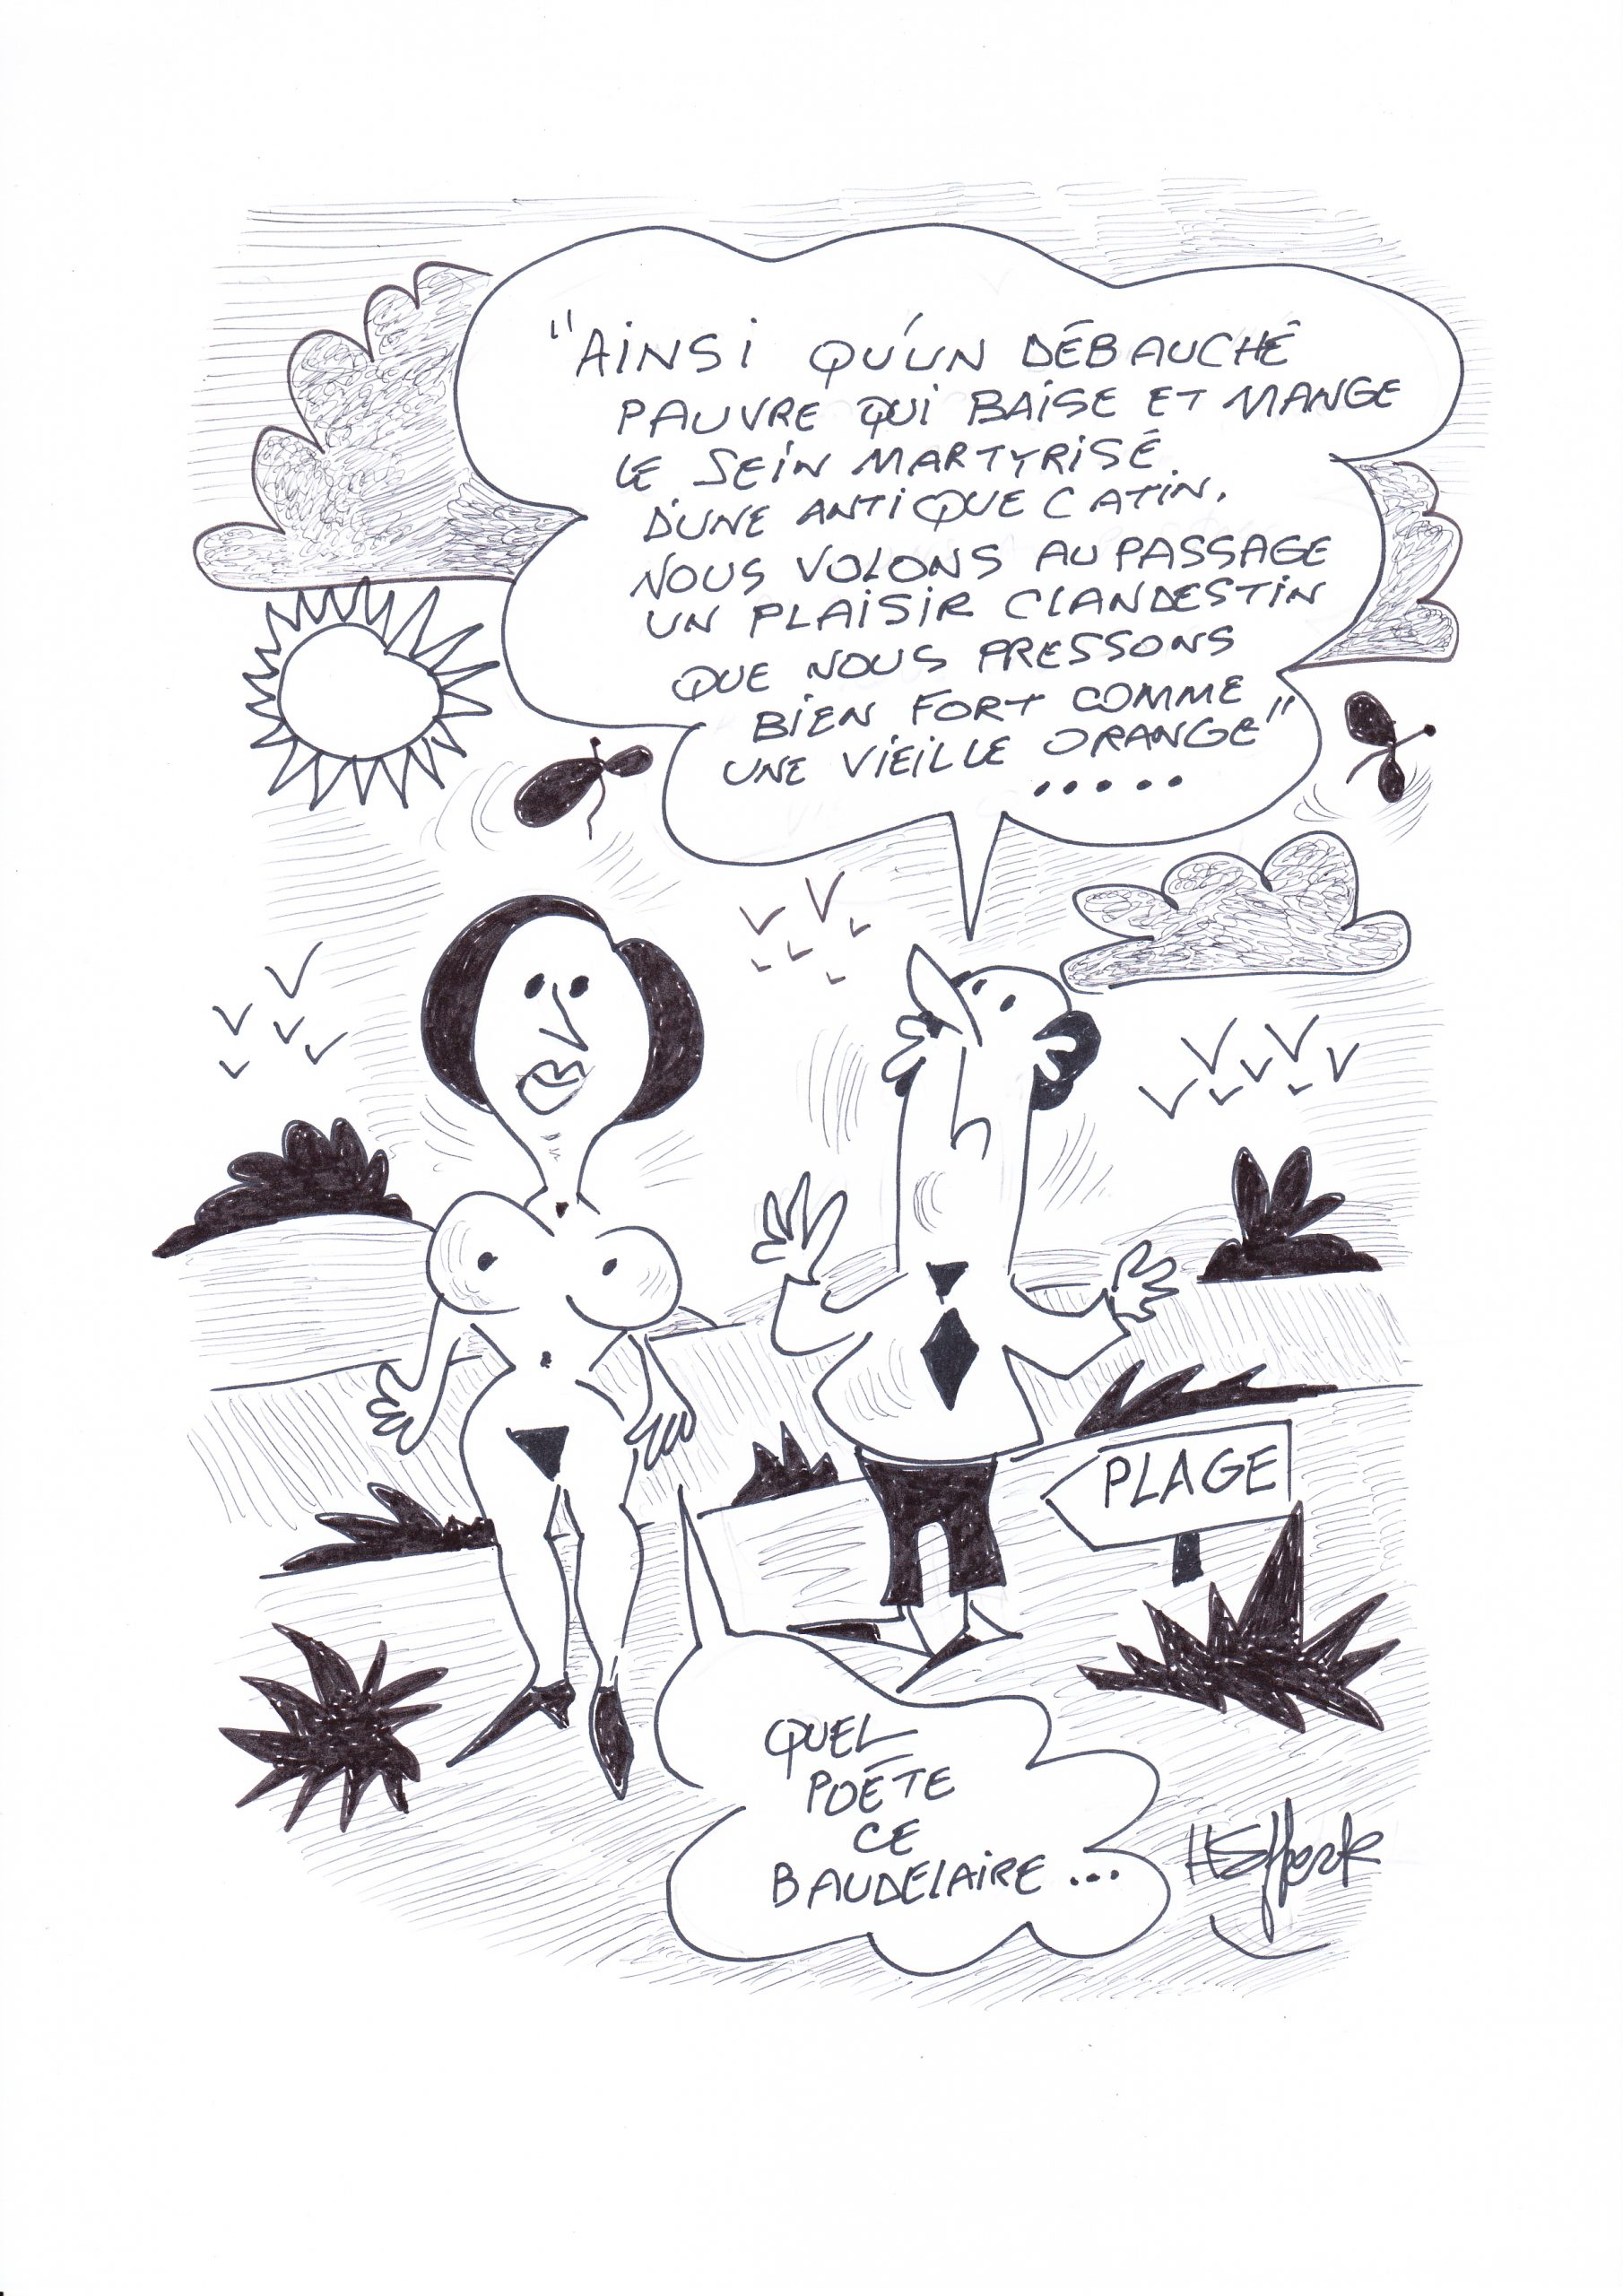 "AINSI QU'UN DÉBAUCHÉ
PAUVRE QUI BAISE ET MANGE
LE SEIN MARTYRISÉ.
D'UNE ANTIQUE CATIN,
NOUS VOLONS AU PASSAGE
UN PLAISIR CLANDESTIN
QUE NOUS PRESSONS
BIEN FORT COMME
UNE VIEILLE ORANGE"
.....
PLAGE
QUEL
POÉTE
CE
BAUDELAIRE ...